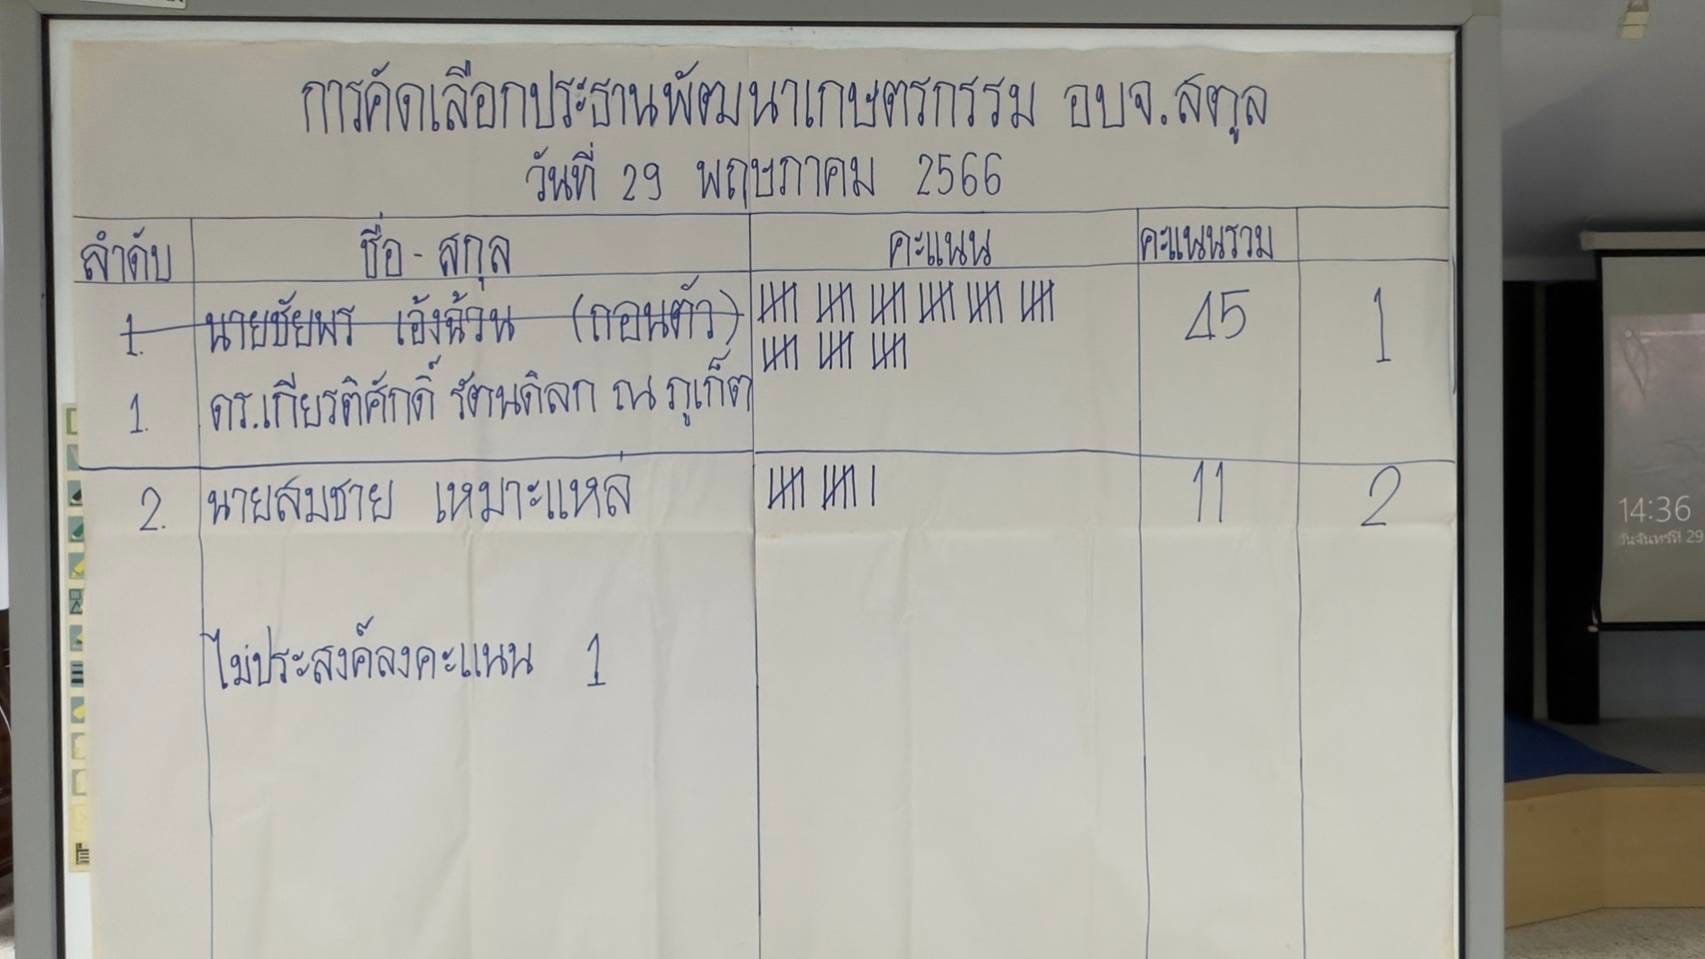 การคัดเลือกประธานพัฒนาเกษตรกรรม อบจ.สตูล
วันที่ 29 พฤษภาคม 2566
ลำดับ ชื่อ - สกุล คะแนน คะแนนรวม
1. นายชัยพร เอ้งฉ้วน (ถอนตัว) 45 1
1. ดร.เกียรติศักดิ์ รัตนดิลก ณ ภูเก็ต
2. นายสมชาย เหมาะแหล่ 11 2
ไม่ประสงค์ลงคะแนน 1
14:36
วันจันทร์ที่ 29